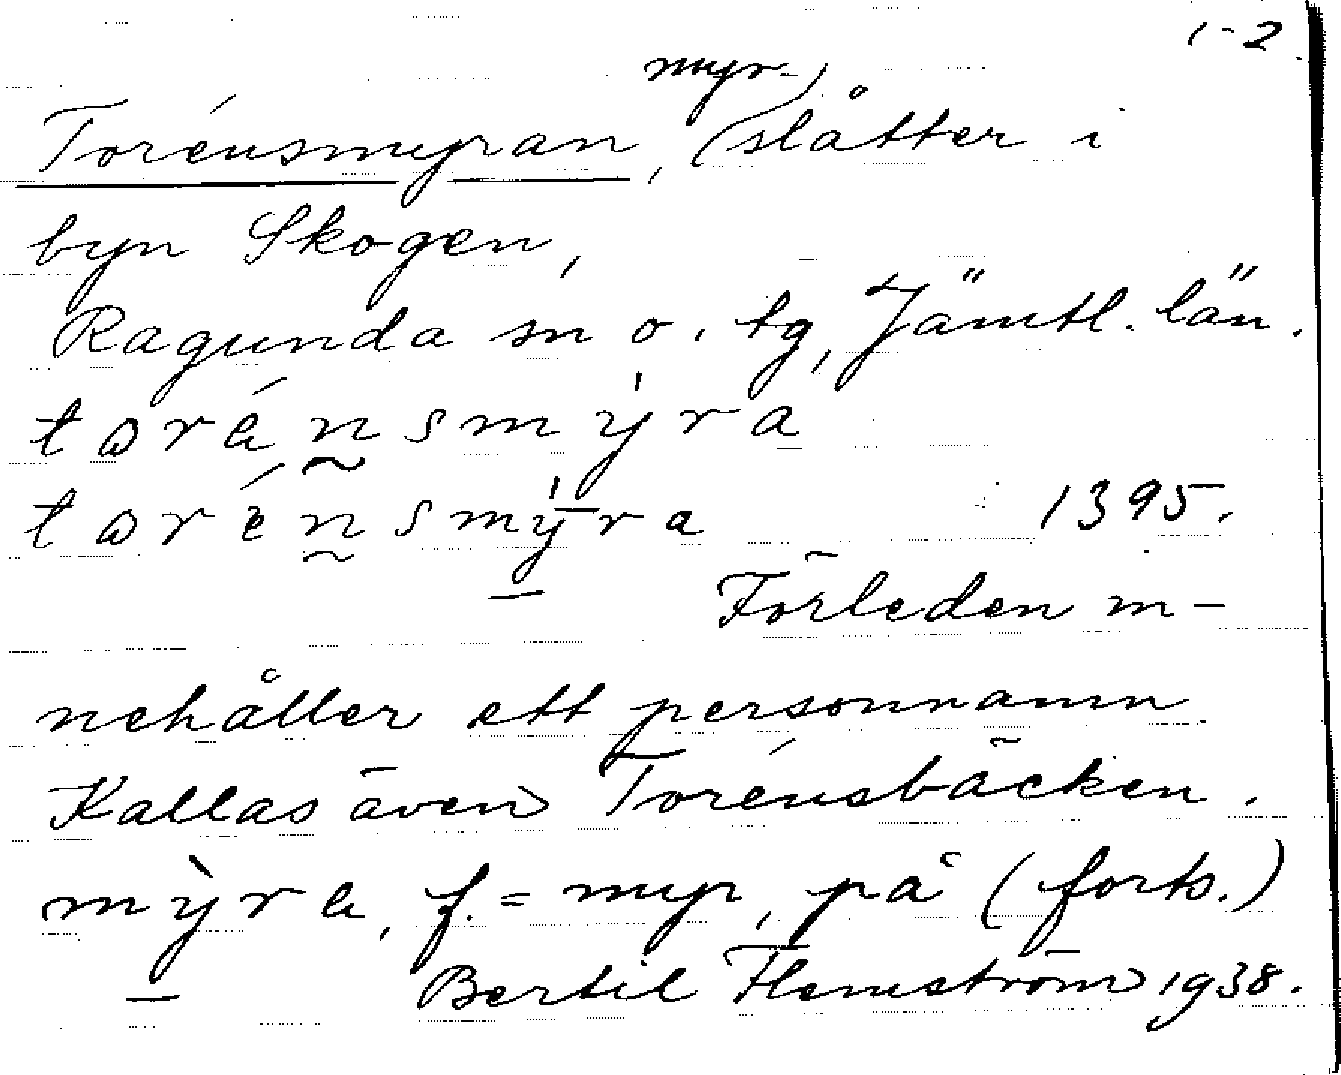 1-2
Torénsmyran, (myr-)slåtter i
byn Skogen,
Ragunda sn o. tg, Jämtl. län.
torénsmýra
torénsmýra 1395.
Förleden in-
nehåller ett personnamn.
Kallas även Torénsbäcken.
mỳra, f. = myr, på (forts.)
Bertil Flemström 1938.